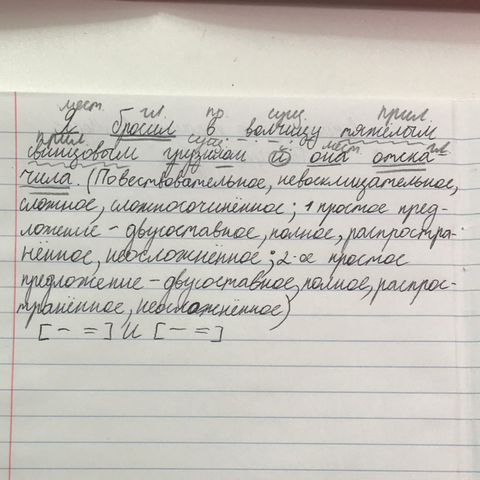 мест. гл. пр. сущ. прил.
Я бросил в волчицу тяжёлым
прил. сущ. мест. гл.
свинцовым грузилом и она отска
чила. (Повествовательное, невосклицательное,
сложное, сложносочинённое; 1 простое пред-
ложение - двусоставное, полное, распростра-
нённое, неосложнённое; 2-ое простое
предложение - двусоставное, полное, распрос-
транённое, неосложнённое)
[- =] и [- =]